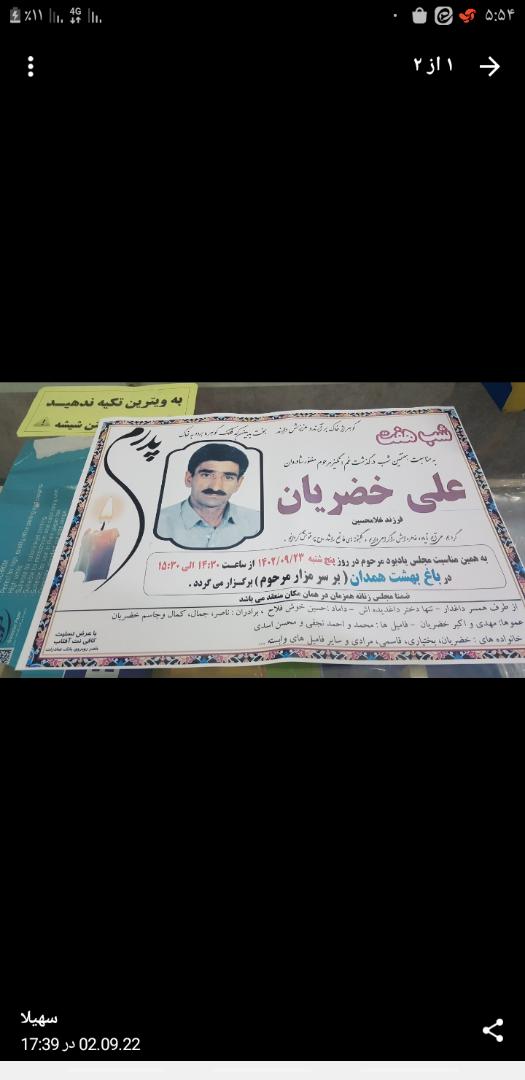 ٪۱۱ 4G ۵:۵۴
۱ از ۲
به ویترین تکیه ندهید
شیشه
شب هفت
پدرم
به مناسبت هفتمین شب درگذشت غم انگیز مرحوم مغفور شادروان
علی خضریان
فرزند غلامحسین
به همین مناسبت مجلس یادبود مرحوم در روز پنج شنبه ۱۴۰۲/۰۹/۲۳ از ساعت ۱۴:۳۰ الی ۱۵:۳۰
در باغ بهشت همدان ( بر سر مزار مرحوم ) برگزار می گردد .
ضمنا مجلس زنانه همزمان در همان مکان منعقد می باشد
از طرف همسر داغدار - تنها دختر داغدیده اش - داماد : حسین خوش فلاح ، برادران : ناصر، جمال، کمال و جاسم خضریان
عموها: مهدی و اکبر خضریان - فامیل ها : محمد و احمد نجفی و محسن اسدی
خانواده های : خضریان، بختیاری، قاسمی، مرادی و سایر فامیل های وابسته ...
با عرض تسلیت
کافی نت آفتاب
سهیلا
02.09.22 در 17:39